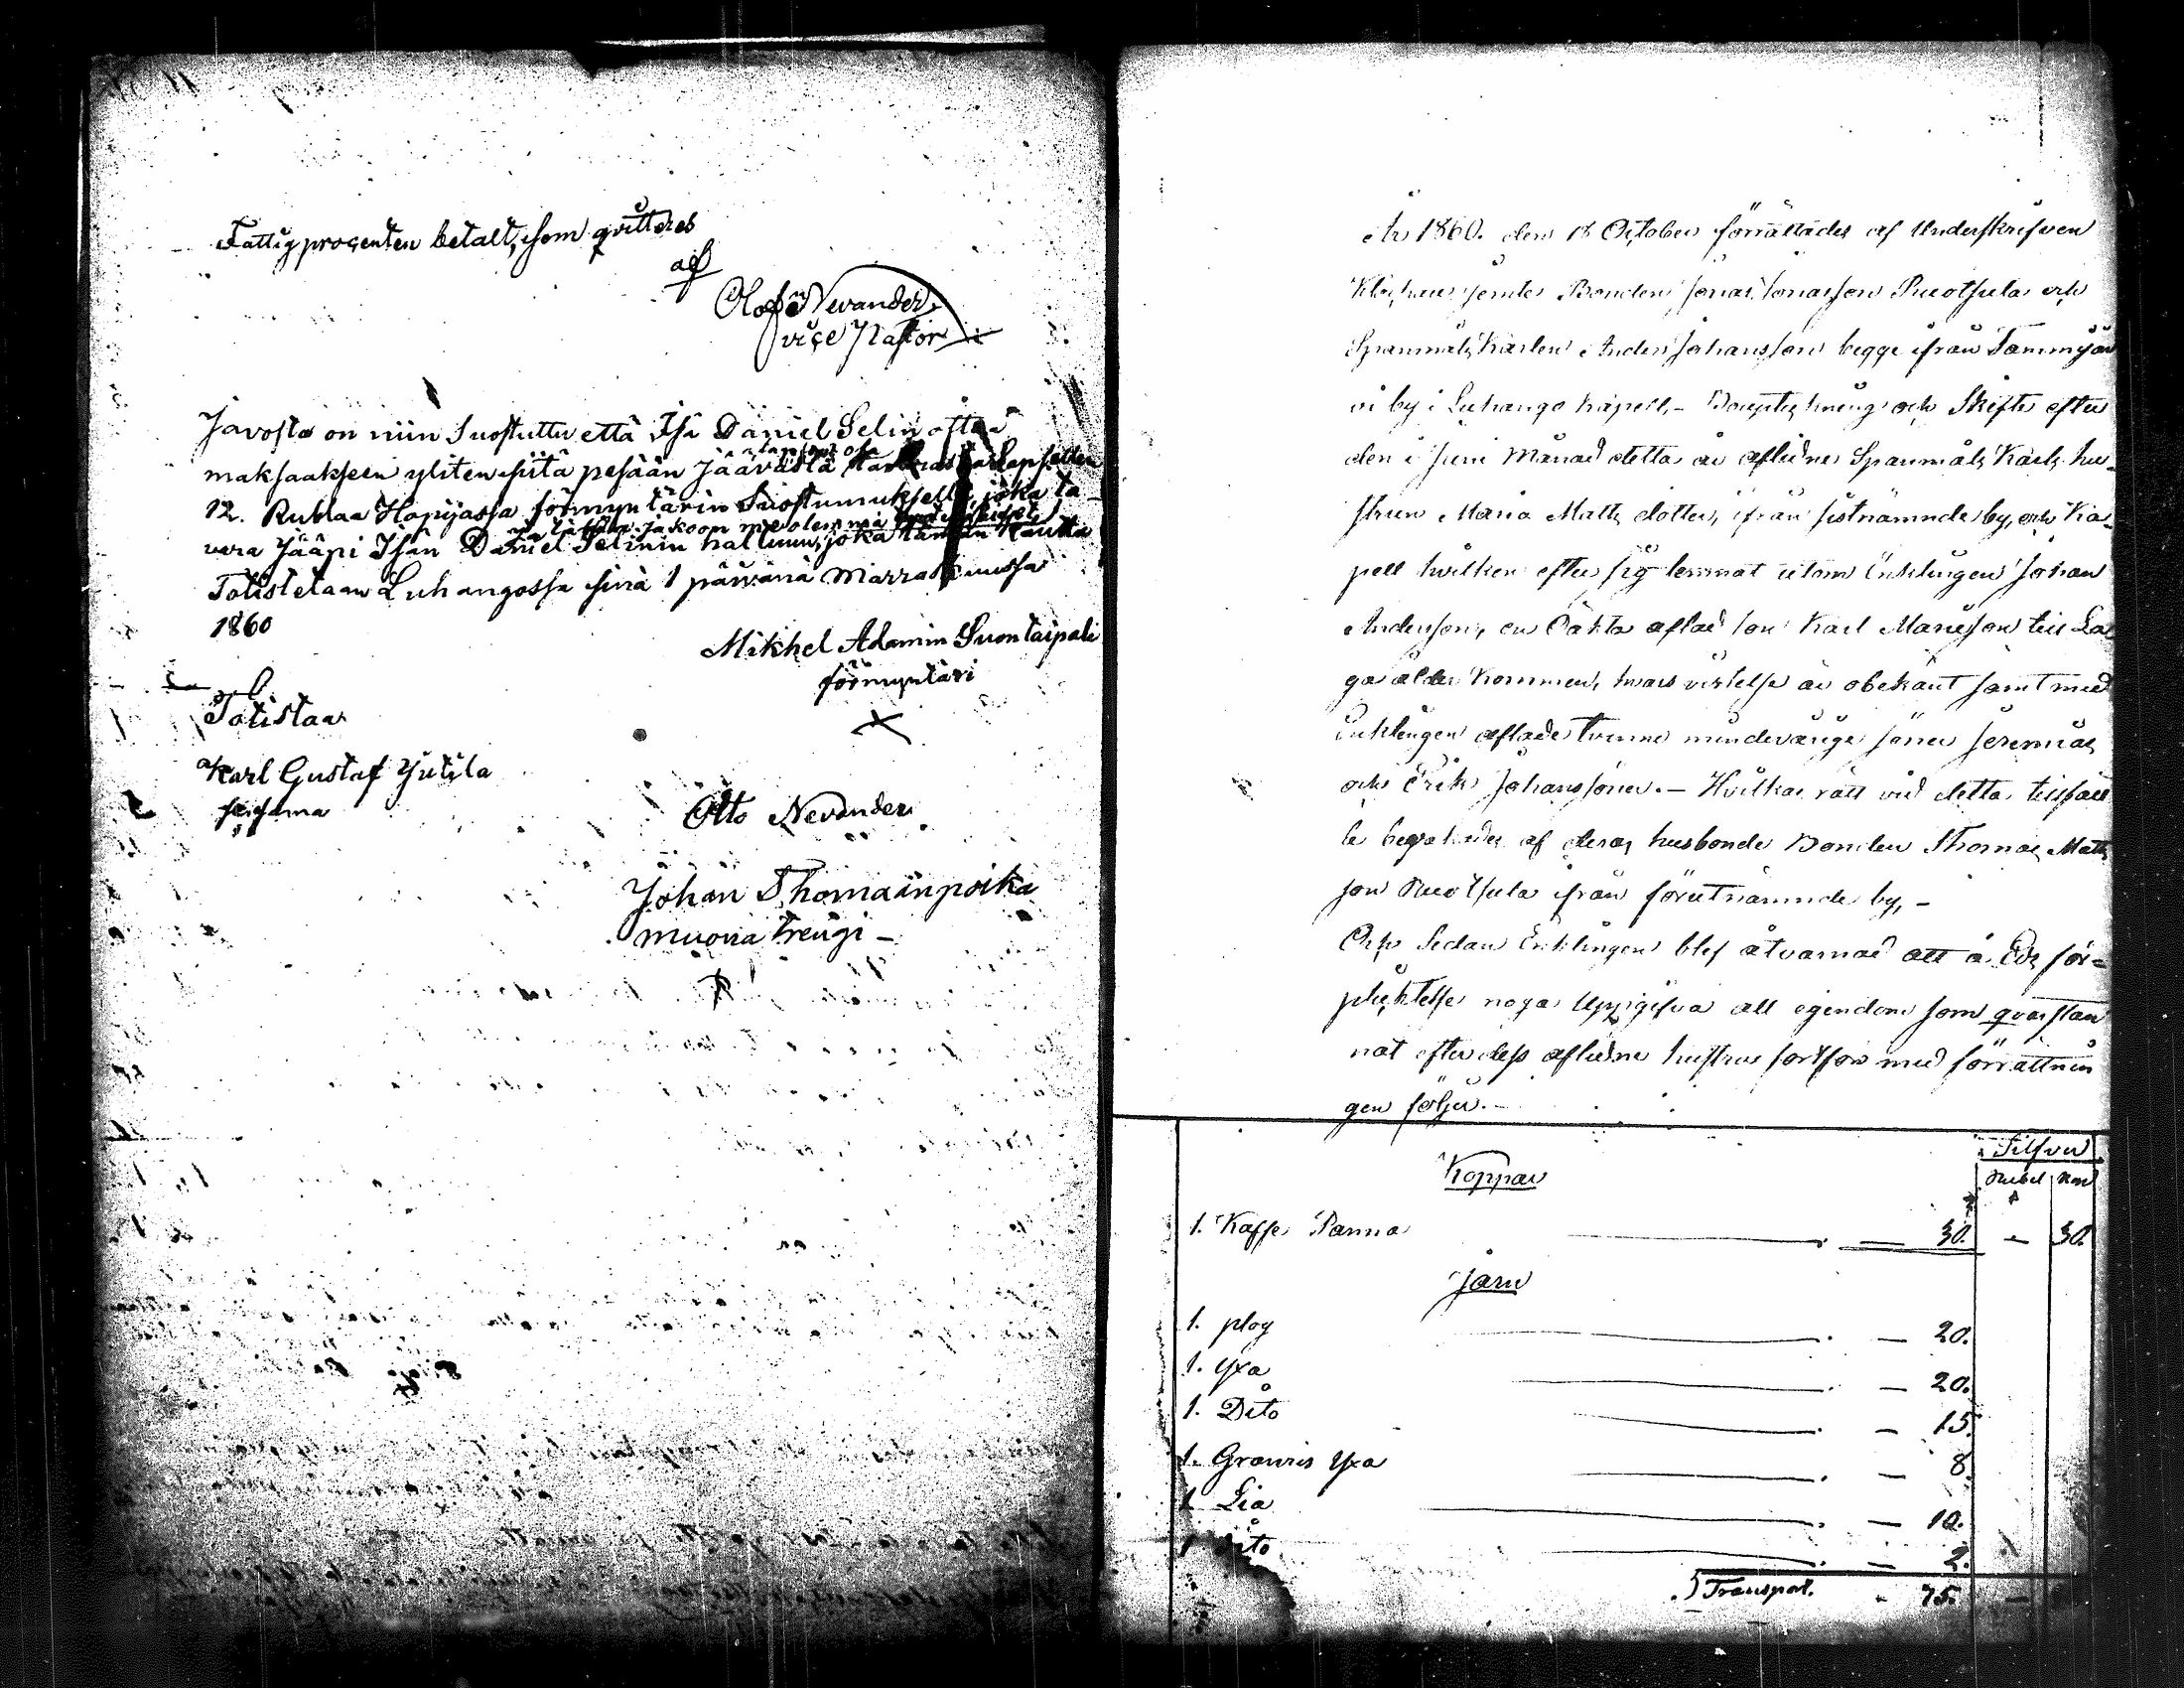 Fattigprocenten betalt, som qvitteras
af
Olof Nevander
vice Pastor
Javosta on niin Suostuttu että Isä Daniel Selin ottaa
maksaaksen yliten siitä pesään jäävästä
12. Rublaa Hopijassa förmyntärin Suostumuksella, joka ta
vara jääpi Isän Daniel Selinin haltuun, joka tämän Kautta
Totistetaan Luhangossa sinä 1 päivänä Marraskuussa
1860
Mikhel Adamin Suontaipali
förmyntäri
Totistaa
Karl Gustaf Yutila
Otto Nevander
Johan Thomaanpoika
muona trengi -
År 1860. den 18 October förrättades af Underskrifven
Klockare jemte Bonden Jonas Jonasson Ruotsula och
Spanmåls Karlen Anders Johansson begge ifrån Tammijär
vi by i Luhango Kapell,- Boupteckning och Skifte efter
den i Juni Månad detta år aflidne Spanmåls Karls hu-
strun Maria Matts dotter, ifrån sistnämnde by, och Ka-
pell hvilken efter sig lemnat utom Enklingen Johan
Andersson, en Oäkta aflad son Karl Mariesson till La
ga ålder Kommen, hvars vistelse är obekant samt med
Enklingen aflade tvenne minderårige söner Jeremias
och Erik Johanssöner. - Hvilkas rätt vid detta tillfäll
le bevakades af deras husbonde Bonden Thomas Matts
son Ruotsula ifrån förutnämnde by, -
Och Sedan Enklingen blef åtvarnad att å Eds för-
pliktelse noga Uppgifva all egendom som qvarstan
nat efter dess aflidne hustru fortfor med förrättnin
gen följer.-
Silfver
Rubel Kop
Koppar
1. Kaffe Panna 30. - 30.
Järn
1. plog - 20.
1. Yxa - 20.
1. Dito - 15.
1. Yxa - 8.
1 Lia - 10.
1 Dito - 2.
Transport. - 75. -